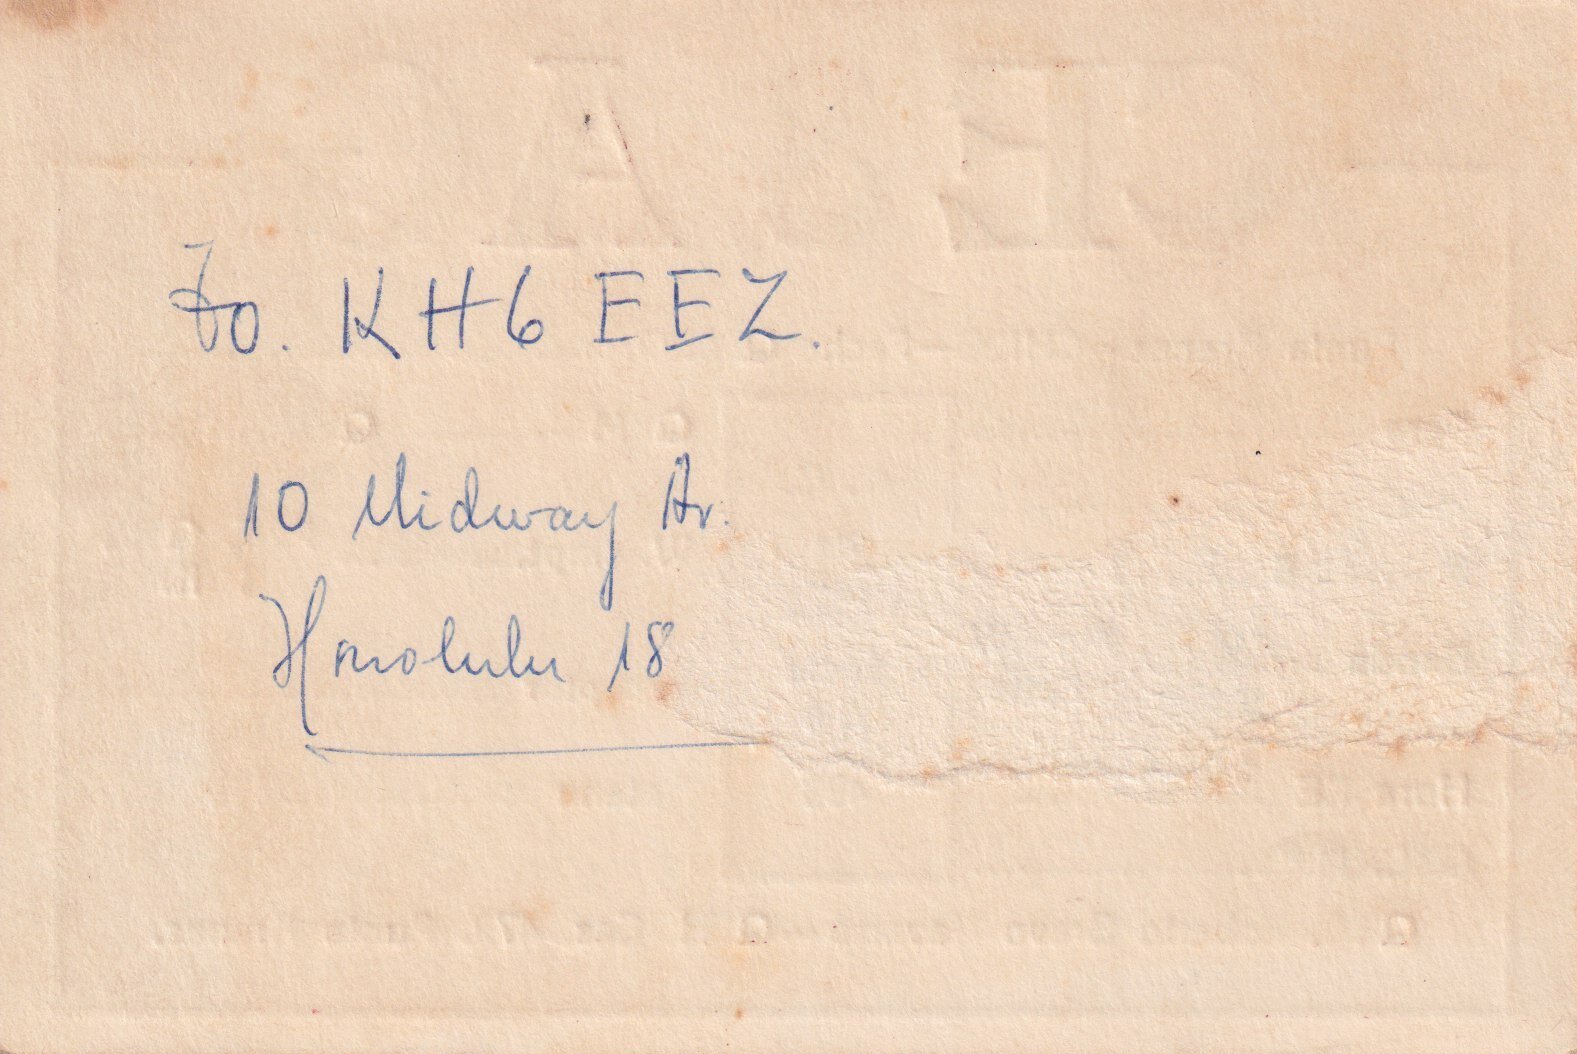 To. KH6EEZ.
10 Midway Av.
Honolulu 18